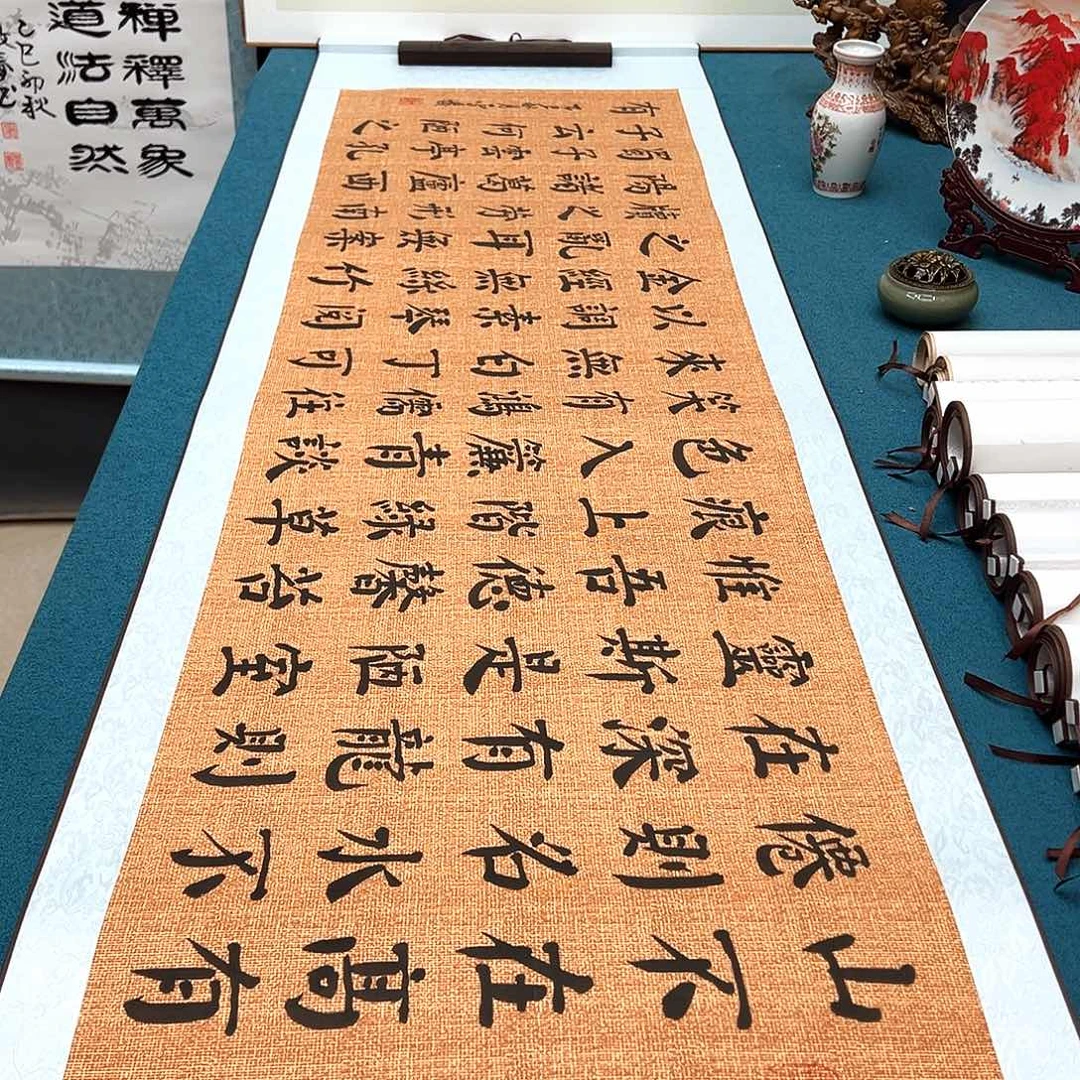 山不在高有
仙則名水不
在深有龍則
靈斯是陋室
惟吾德馨苔
痕上階綠草
色入簾青談
笑有鴻儒往
来無白丁可
以調素琴閱
金經無絲竹
之亂耳無案
牘之勞形南
陽諸葛廬西
蜀子雲亭孔
子云何陋之
有
禪釋萬象
道法自然
乙巳初秋